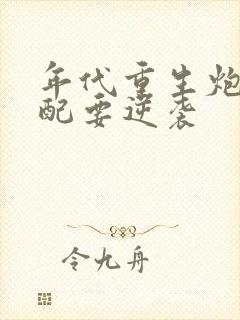 年代重生炮
配要逆袭
令九舟